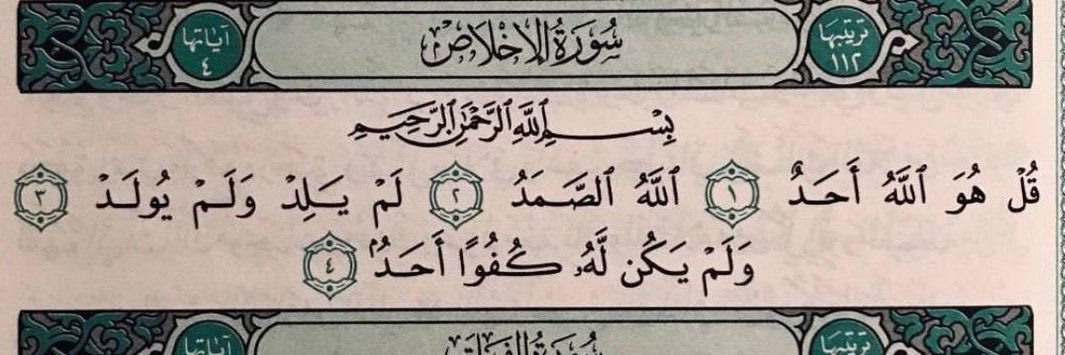 ترتيبها ١١٢ سُورَةُ الإِخْلَاصِ آيَاتها ٤
بِسْمِ ٱللَّهِ ٱلرَّحْمَٰنِ ٱلرَّحِيمِ
قُلْ هُوَ ٱللَّهُ أَحَدٌ ١ ٱللَّهُ ٱلصَّمَدُ ٢ لَمْ يَلِدْ وَلَمْ يُولَدْ ٣
وَلَمْ يَكُن لَّهُۥ كُفُوًا أَحَدٌۢ ٤
ترتيبها سُورَةُ الفَلَقِ آيَاتها